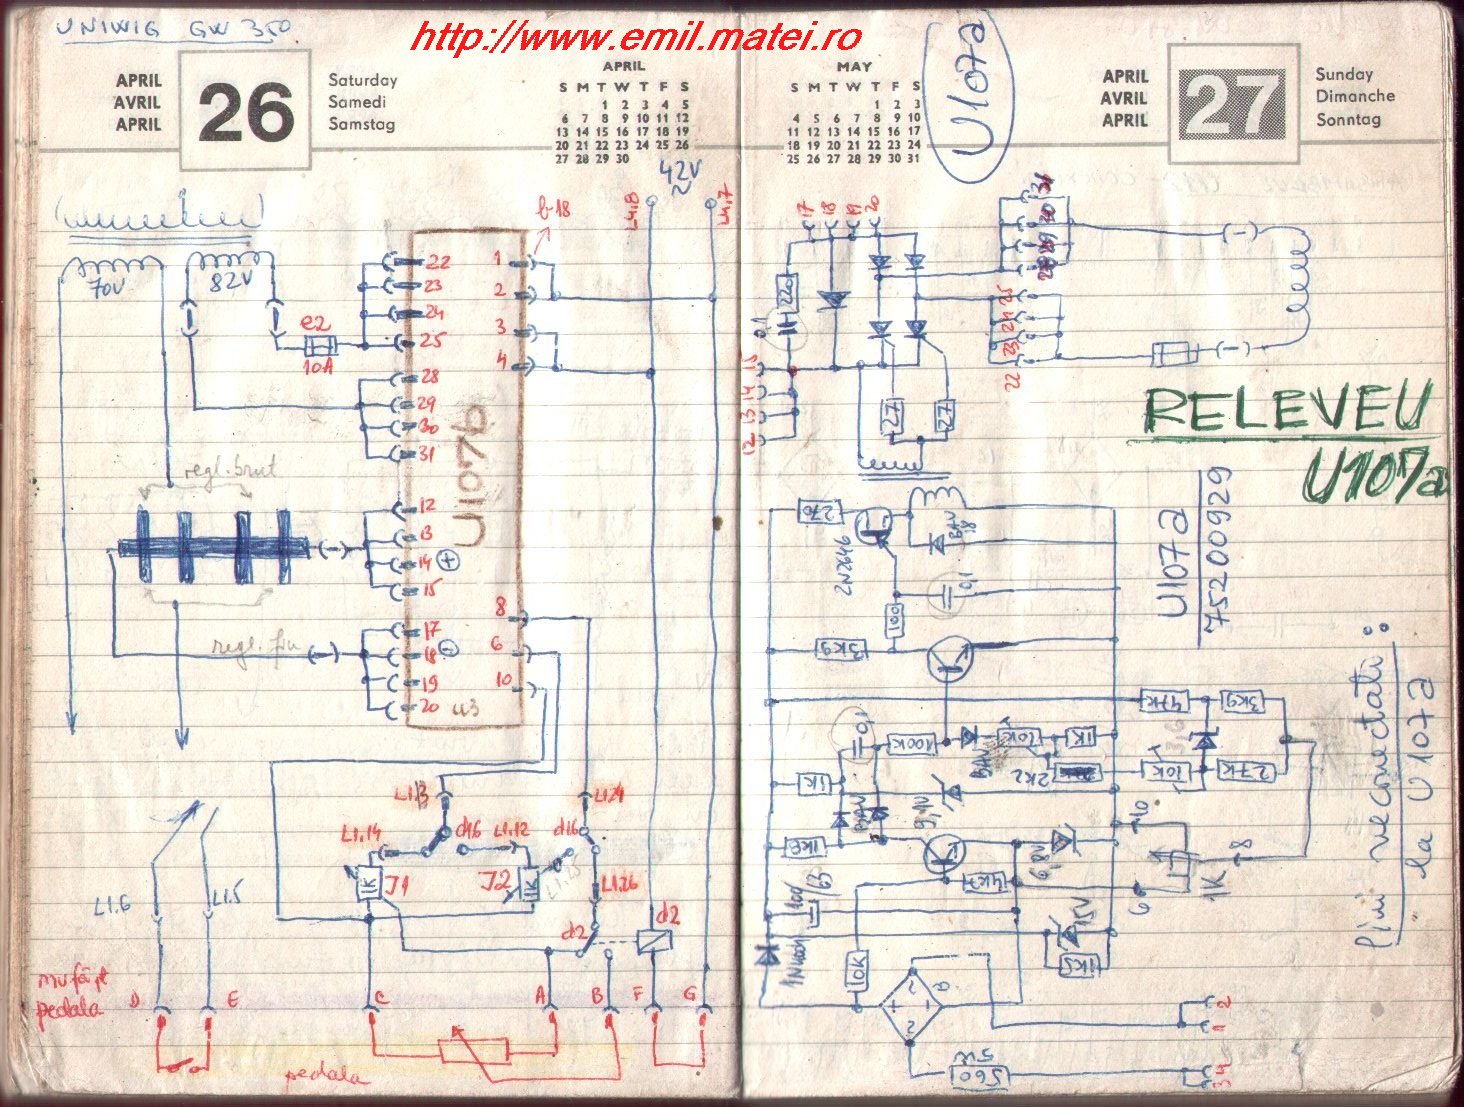 UNIWIG GW 350
http://www.emil.matei.ro
APRIL
AVRIL
APRIL
26
Saturday
Samedi
Samstag
APRIL
S M T W T F S
1 2 3 4 5
6 7 8 9 10 11 12
13 14 15 16 17 18 19
20 21 22 23 24 25 26
27 28 29 30
42V
~
L4.8
L4.7
b-18
70V
82V
e2
10A
22
23
24
25
28
29
30
31
12
13
14 +
15
17
18 -
19
20
1
2
3
4
8
6
10
U107b
u3
regl. brut
regl. fin
L1.13
L1.24
L1.14
d16
L1.12
d16
1K
J1
J2
1K
L1.25
L1.26
d2
d2
L1.6
L1.5
mufă pt
pedala
D
E
C
A
B
F
G
pedala
MAY
S M T W T F S
1 2 3
4 5 6 7 8 9 10
11 12 13 14 15 16 17
18 19 20 21 22 23 24
25 26 27 28 29 30 31
U107a
APRIL
AVRIL
APRIL
27
Sunday
Dimanche
Sonntag
17
18
19
20
220
0,1
15
14
13
12
31
30
29
28
25
24
23
22
27
27
RELEVEU
U107a
U107a
75200929
270
2N2646
BAV
18
0,1
100
3K9
47K
3K9
0,1
100K
BAV
10K
1K
2K2
10K
27K
1K
9,1V
1K8
6,8V
4K7
10
8
6
1K
100
63
15V
1K5
10K
560
5W
2
1
3
4
Pini neconectati:
la U107a